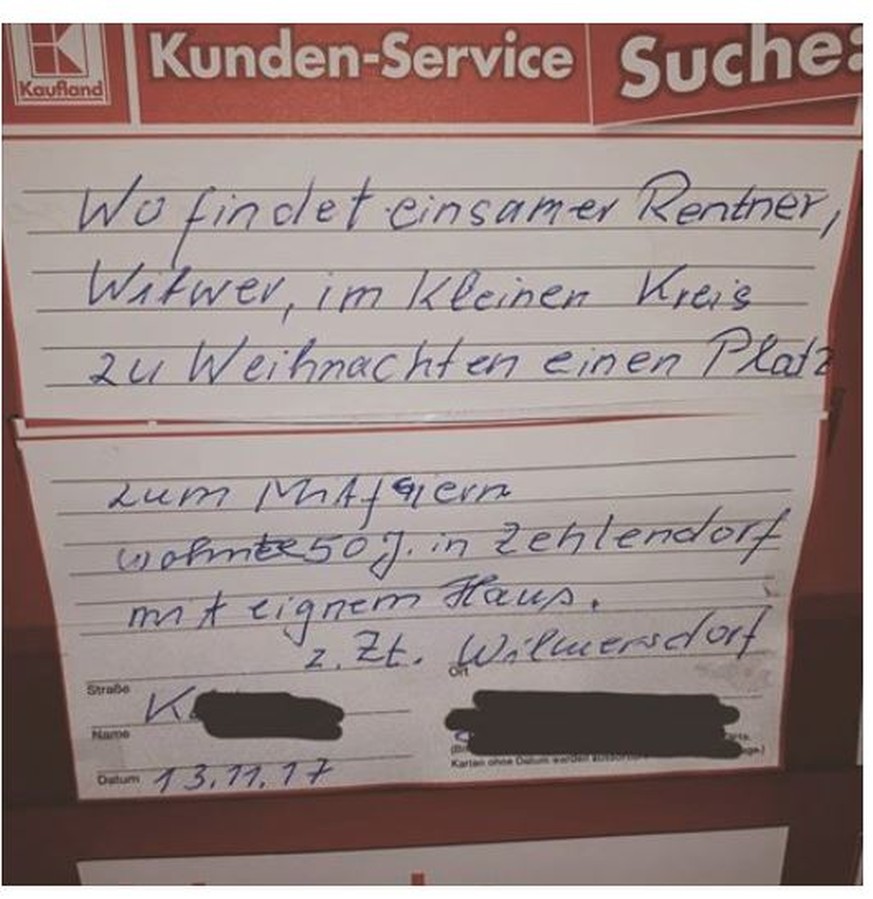 Kaufland
Kunden-Service
Suche:
Wo findet einsamer Rentner,
Witwer, im kleinen Kreis
zu Weihnachten einen Platz
zum Mitfeiern
wohnte 50 J. in Zehlendorf
mit eignem Haus.
z. Zt. Wilmersdorf
Straße
Ort
K
Name
Datum 13.11.17
Karten ohne Datum werden